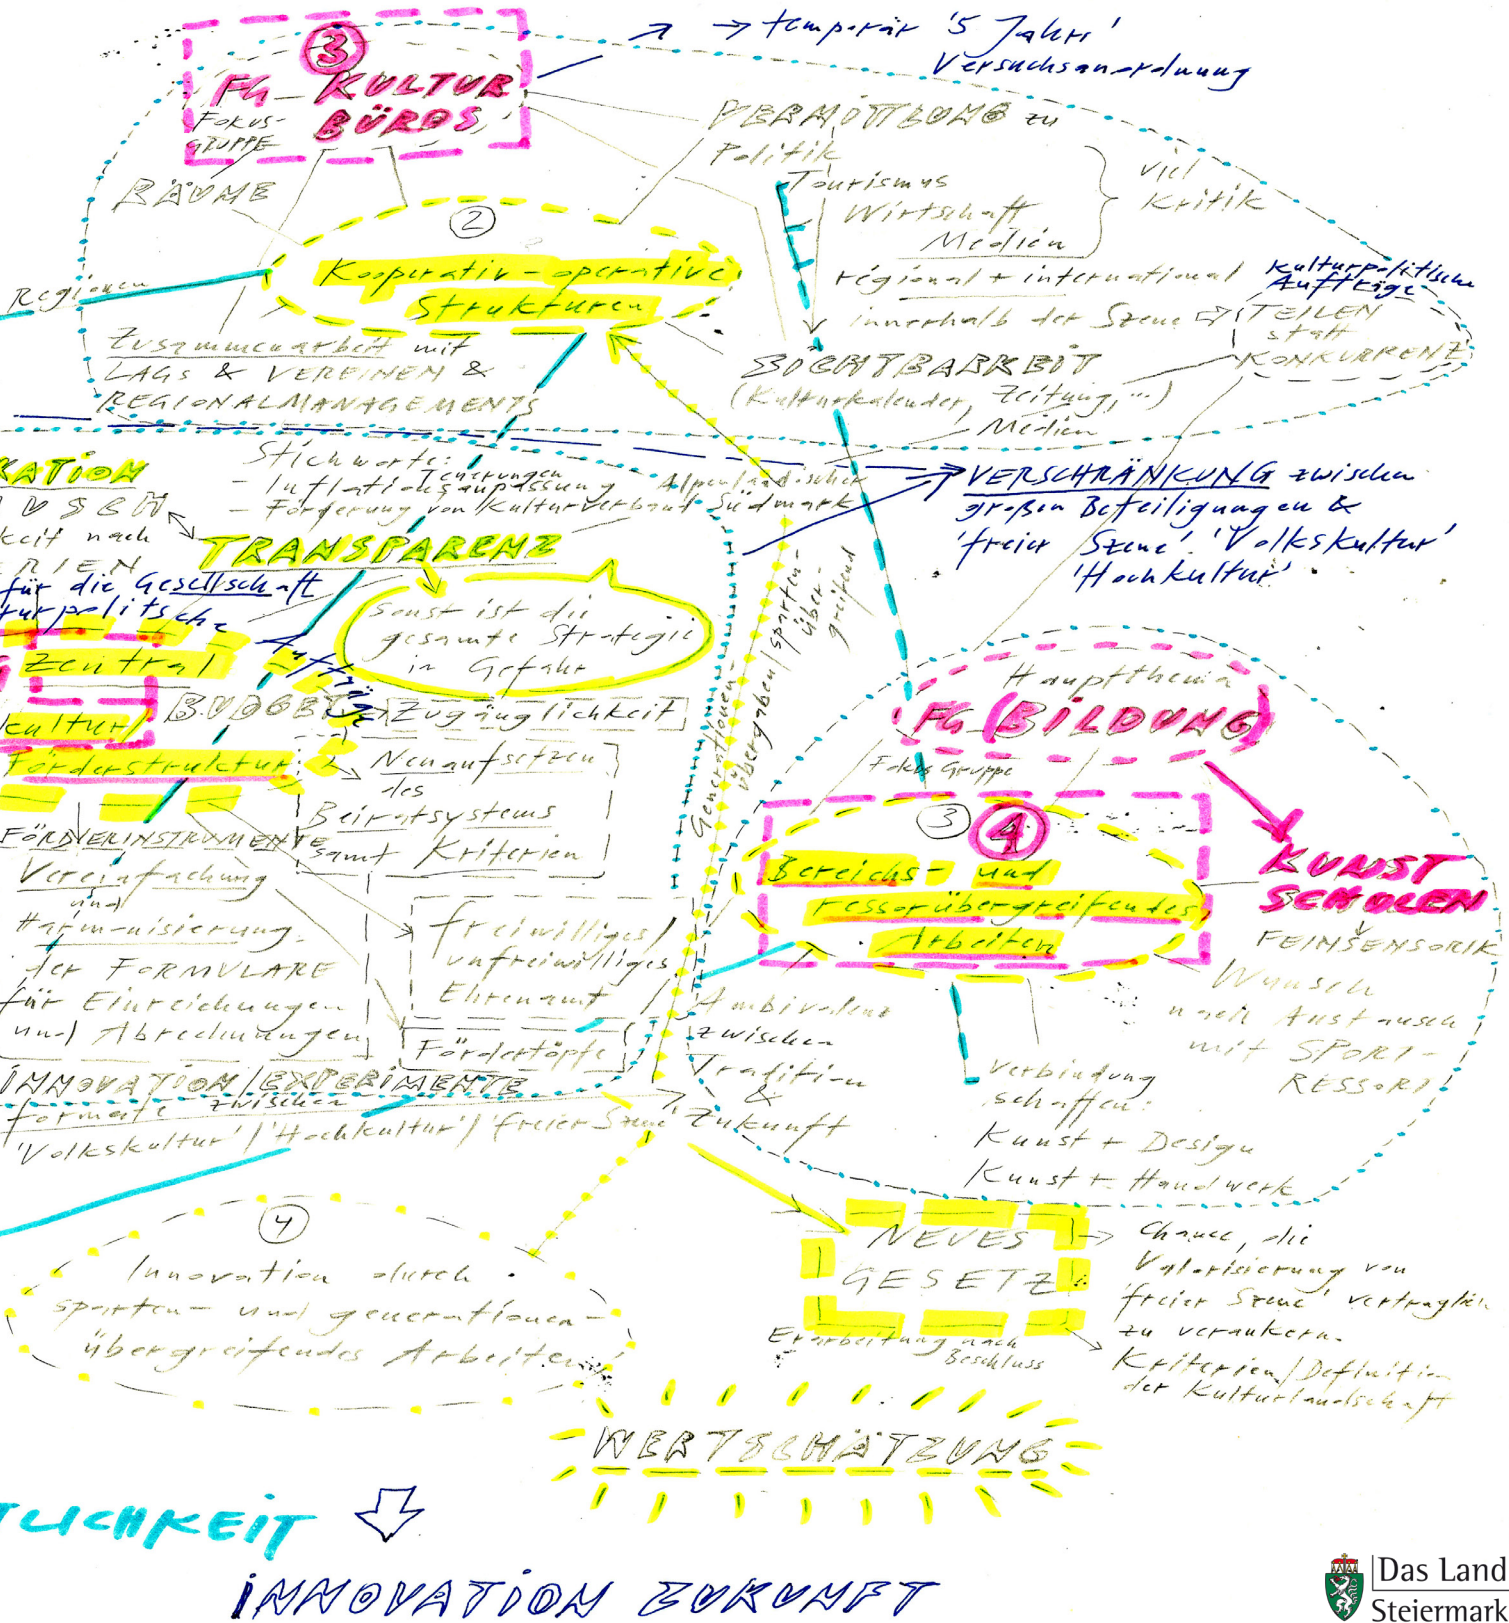 3
FG_KULTUR
BÜROS
FOKUS-
GRUPPE
→ temporär '5 Jahre'
Versuchsanordnung
RÄUME
VERMITTLUNG zu
Politik
Tourismus
Wirtschaft
Medien
viel
Kritik
regional + international
innerhalb der Szene
Kulturpolitische
Aufträge
TEILEN
statt
KONKURRENZ
2
Kooperativ-operative
Strukturen
Regionen
Zusammenarbeit mit
LAGS & VEREINEN &
REGIONALMANAGEMENTS
SICHTBARKEIT
(Kulturkalender, Zeitung, ...)
Medien
Stichworte:
Teuerungen
- Inflationsanpassung
- Förderung von Kulturverband Südmark
Alpenländischer
VERSCHRÄNKUNG zwischen
großen Beteiligungen &
'freier Szene' 'Volkskultur'
'Hochkultur'
KATION
USCH
keit nach
RIEN
für die Gesellschaft
turpolitsche
Aufträge
TRANSPARENZ
sonst ist die
gesamte Strategie
in Gefahr
Zentral
kultur
Förderstruktur
BUDGET
Zugänglichkeit
Neuaufsetzen
des
Beiratsystems
samt Kriterien
Generationen-
übergaben/sparten-
über-
greifend
FÖRDERINSTRUMENTE
Vereinfachung
und
Harmonisierung
der FORMULARE
für Einreichungen
und Abrechnungen
freiwilliges/
unfreiwilliges
Ehrenamt
Fördertöpfe
INNOVATION/EXPERIMENTE
formate zwischen
'Volkskultur'/'Hochkultur'/'freier Szene'
Hauptthema
FG_(BILDUNG)
Fokus Gruppe
3
4
Bereichs- und
ressorübergreifendes
Arbeiten
KUNST
SCHULEN
FEINSENSORIK
Wunsch
nach Austausch
mit SPORT-
RESSORT
Ambivalenz
zwischen
Tradition
&
Zukunft
Verbindung
schaffen:
Kunst + Design
Kunst + Handwerk
4
Innovation durch
sparten- und generationen-
übergreifendes Arbeiten
NEUES
GESETZ
Erarbeitung nach
Beschluss
Chance, die
Valorisierung von
'freier Szene' vertraglich
zu verankern.
Kriterien/Definition
der Kulturlandschaft
WERTSCHÄTZUNG
TLICHKEIT
INNOVATION ZUKUNFT
Das Land
Steiermark